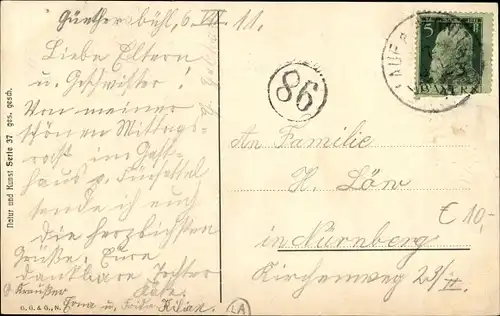 Günthersbühl, 6. VII. 11.
Liebe Eltern
u. Geschwister!
Von meiner
schönen Mittags-
rast im Gast-
haus z.
sende ich euch
die herzlichsten
Grüße. Eure
dankbare Tochter
Käte.
Kraußer
Erna u. Frieda
O. G. & G., N.
Natur und Kunst Serie 37 ges. gesch.
86
LAUF
5
BAYERN
An Familie
H. Löw
€ 10,-
in Nürnberg
Kirchenweg 29/II.
LA